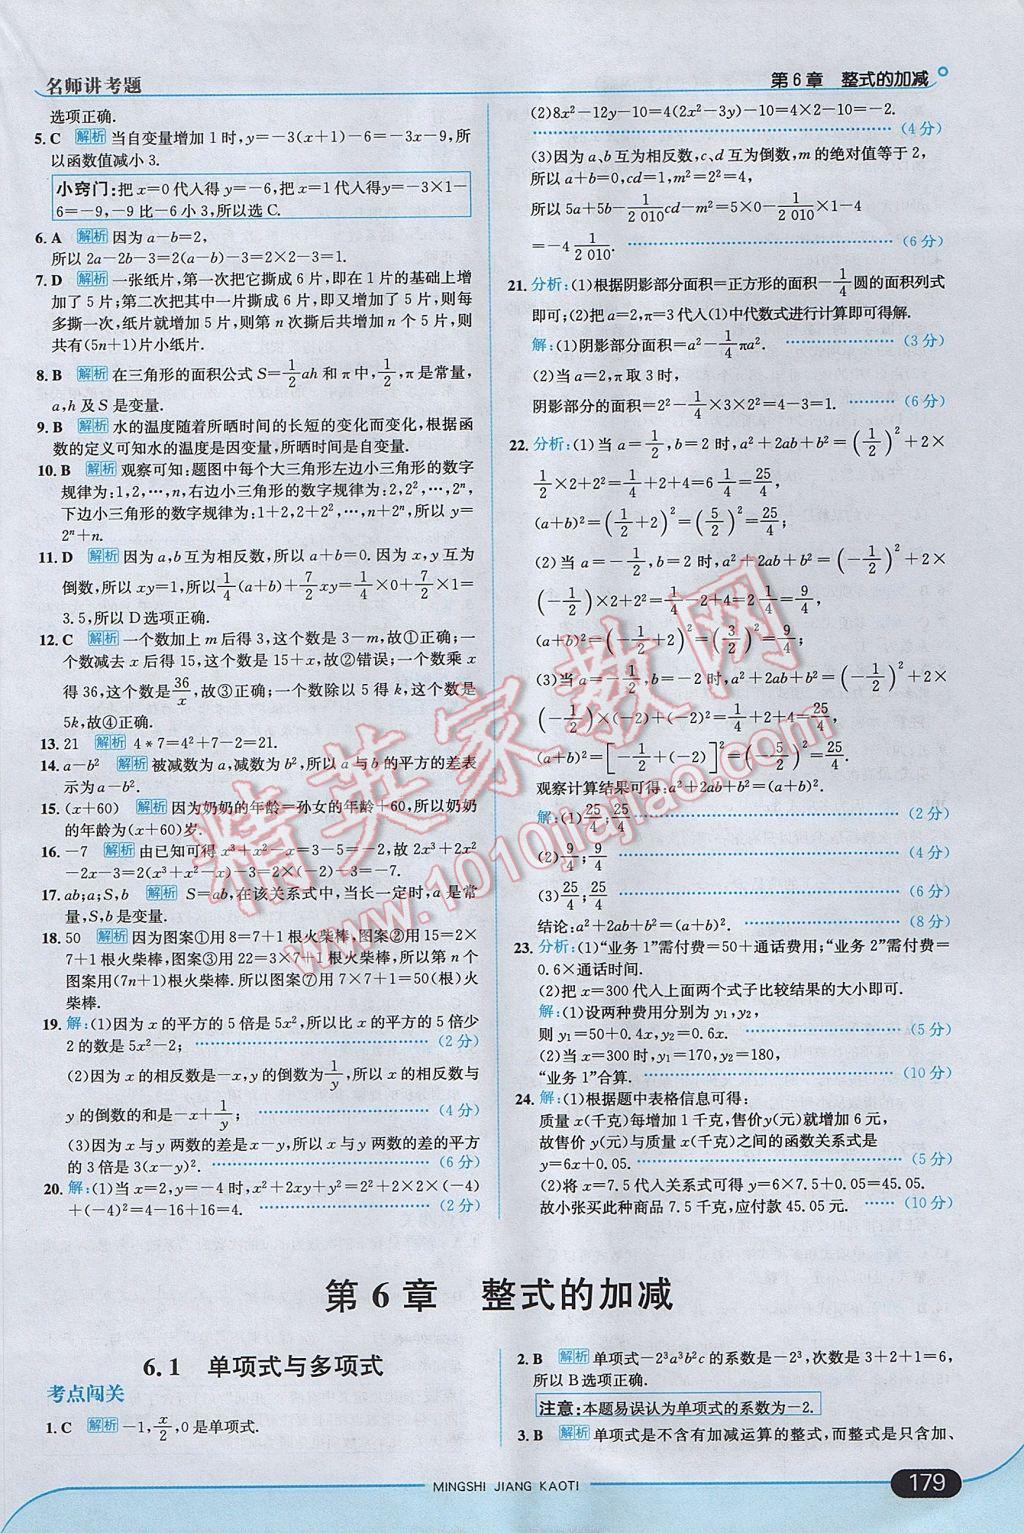 名师讲考题
第6章 整式的加减
选项正确.
5. C 解析 当自变量增加1时,y=-3(x+1)-6=-3x-9,所
以函数值减小3.
小窍门:把x=0代入得y=-6,把x=1代入得y=-3×1-
6=-9,-9比-6小3,所以选C.
6. A 解析 因为a-b=2,
所以2a-2b-3=2(a-b)-3=2×2-3=1.
7. D 解析 一张纸片,第一次把它撕成6片,即在1片的基础上增
加了5片;第二次把其中一片撕成6片,即又增加了5片,则每
多撕一次,纸片就增加5片,则第n次撕后共增加n个5片,则
共有(5n+1)片小纸片.
8. B 解析 在三角形的面积公式S=1/2ah和π中,1/2,π是常量,
a,h及S是变量.
9. B 解析 水的温度随着所晒时间的长短的变化而变化,根据函
数的定义可知水的温度是因变量,所晒时间是自变量.
10. B 解析 观察可知:题图中每个大三角形左边小三角形的数字
规律为:1,2,…,n,右边小三角形的数字规律为:2,2²,…,2ⁿ,
下边小三角形的数字规律为:1+2,2+2²,…,n+2ⁿ,所以y=
2ⁿ+n.
11. D 解析 因为a,b互为相反数,所以a+b=0.因为x,y互为
倒数,所以xy=1,所以1/4(a+b)+7/2xy=1/4×0+7/2×1=
3.5,所以D选项正确.
12. C 解析 一个数加上m后得3,这个数是3-m,故①正确;一
个数减去x后得15,这个数是15+x,故②错误;一个数乘x
得36,这个数是36/x,故③正确;一个数除以5得k,这个数是
5k,故④正确.
13. 21 解析 4*7=4²+7-2=21.
14. a-b² 解析 被减数为a,减数为b²,所以a与b的平方的差表
示为a-b².
15. (x+60) 解析 因为奶奶的年龄=孙女的年龄+60,所以奶奶
的年龄为(x+60)岁.
16. -7 解析 由已知可得x³+x²-x=3-5=-2,故2x³+2x²
-2x-3=2(x³+x²-x)-3=2×(-2)-3=-7.
17. ab;a;S,b 解析 S=ab,在该关系式中,当长一定时,a是常
量,S,b是变量.
18. 50 解析 因为图案①用8=7+1根火柴棒,图案②用15=2×
7+1根火柴棒,图案③用22=3×7+1根火柴棒,所以第n个
图案用(7n+1)根火柴棒.所以图案⑦用7×7+1=50(根)火
柴棒.
19. 解:(1)因为x的平方的5倍是5x²,所以比x的平方的5倍少
2的数是5x²-2; (2分)
(2)因为x的相反数是-x,y的倒数为1/y,所以x的相反数与
y的倒数的和是-x+1/y; (4分)
(3)因为x与y两数的差是x-y,所以x与y两数的差的平方
的3倍是3(x-y)². (6分)
20. 解:(1)当x=2,y=-4时,x²+2xy+y²=2²+2×2×(-4)
+(-4)²=4-16+16=4. (2分)
(2)8x²-12y-10=4(2x²-3y)-10=4×2-10=-2.
(4分)
(3)因为a、b互为相反数,c、d互为倒数,m的绝对值等于2,
所以a+b=0,cd=1,m²=2²=4,
所以5a+5b-1/2 010cd-m²=5×0-1/2 010×1-4
=-4 1/2 010. (6分)
21. 分析:(1)根据阴影部分面积=正方形的面积-1/4圆的面积列式
即可;(2)把a=2,π=3代入(1)中代数式进行计算即可得解.
解:(1)阴影部分面积=a²-1/4πa². (3分)
(2)当a=2,π取3时,
阴影部分的面积=2²-1/4×3×2²=4-3=1. (6分)
22. 分析:(1)当a=1/2,b=2时,a²+2ab+b²=(1/2)²+2×
1/2×2+2²=1/4+2+4=6 1/4=25/4,
(a+b)²=(1/2+2)²=(5/2)²=25/4;
(2)当a=-1/2,b=2时,a²+2ab+b²=(-1/2)²+2×
(-1/2)×2+2²=1/4-2+4=2 1/4=9/4,
(a+b)²=(-1/2+2)²=(3/2)²=9/4;
(3)当a=-1/2,b=-2时,a²+2ab+b²=(-1/2)²+2×
(-1/2)×(-2)+(-2)²=1/4+2+4=25/4,
(a+b)²=[-1/2+(-2)]²=(-5/2)²=25/4.
观察计算结果可得:a²+2ab+b²=(a+b)².
解:(1)25/4;25/4 (2分)
(2)9/4;9/4 (4分)
(3)25/4;25/4 (6分)
结论:a²+2ab+b²=(a+b)². (8分)
23. 分析:(1)“业务1”需付费=50+通话费用;“业务2”需付费=
0.6×通话时间.
(2)把x=300代入上面两个式子比较结果的大小即可.
解:(1)设两种费用分别为y₁,y₂,
则y₁=50+0.4x,y₂=0.6x. (5分)
(2)当x=300时,y₁=170,y₂=180,
“业务1”合算. (10分)
24. 解:(1)根据题中表格信息可得:
质量x(千克)每增加1千克,售价y(元)就增加6元,
故售价y(元)与质量x(千克)之间的函数关系式是
y=6x+0.05. (5分)
(2)将x=7.5代入关系式可得y=6×7.5+0.05=45.05.
故小张买此种商品7.5千克,应付款45.05元. (10分)
第6章 整式的加减
6.1 单项式与多项式
考点闯关
1. C 解析 -1,x/2,0是单项式.
2. B 解析 单项式-2³a³b²c的系数是-2³,次数是3+2+1=6,
所以B选项正确.
注意:本题易误认为单项式的系数为-2.
3. B 解析 单项式是不含有加减运算的整式,而整式是只含加、
MINGSHI JIANG KAOTI
179
精英家教网
www.1010jiajiao.com